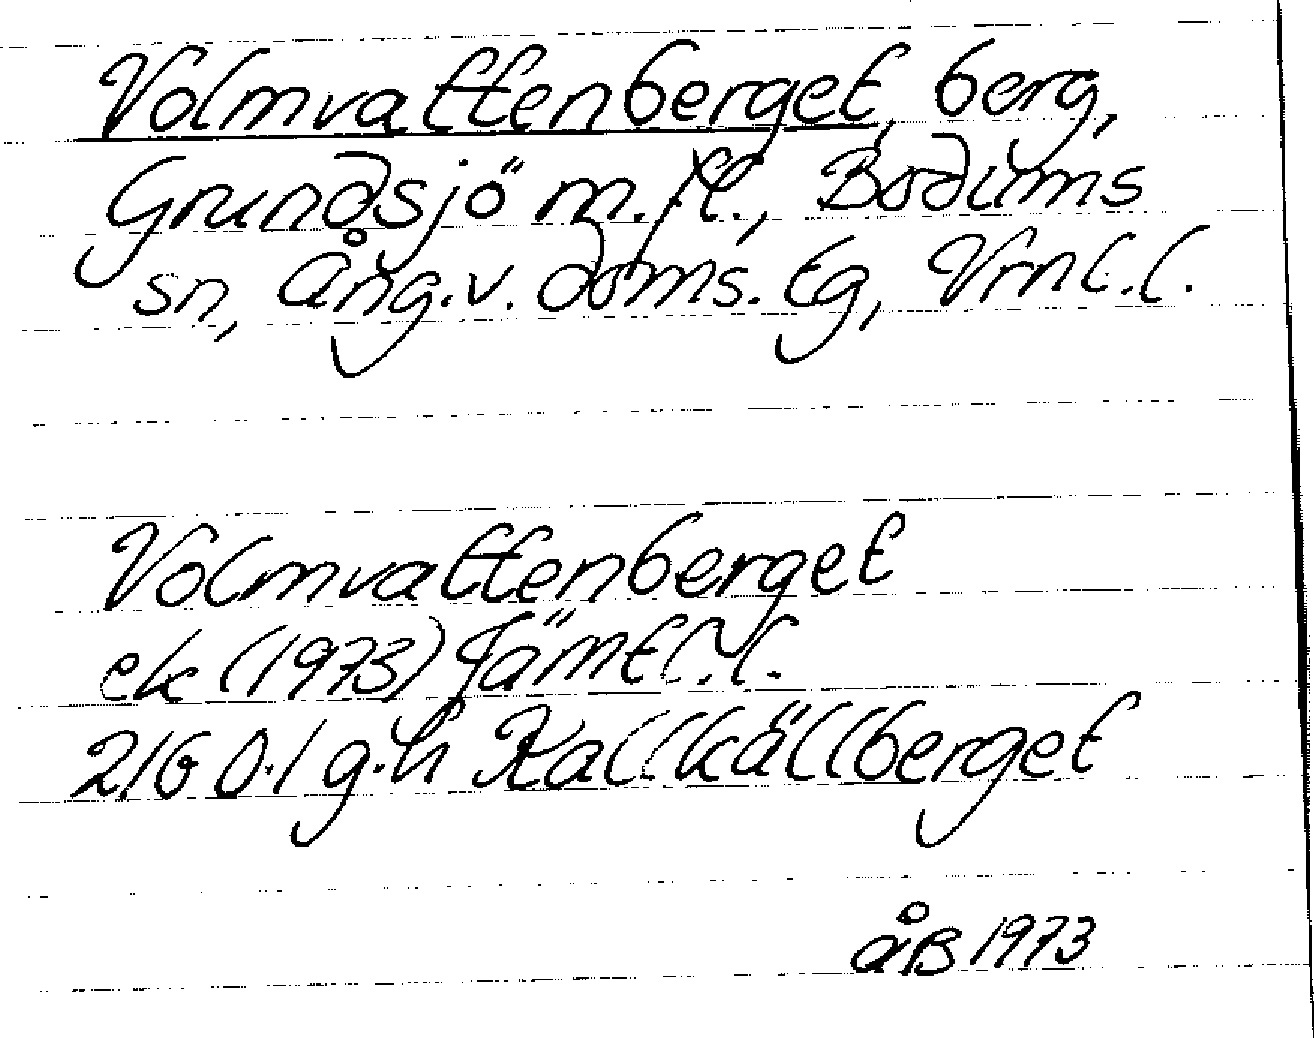 Volmvattenberget, berg,
Grundsjö m. fl., Bodums
sn, Ång.v. doms. tg, Vrnl.l.
Volmvattenberget
ek (1973) Jämtl.l.
21G 0-1 g-h Kallkällberget
ÅB 1973